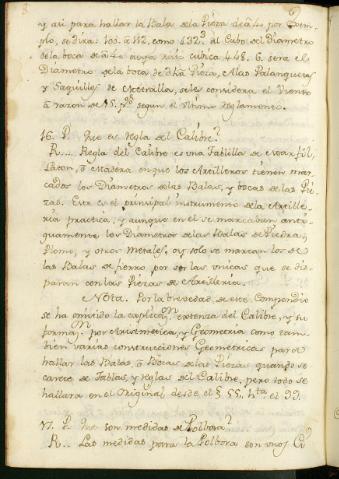 y asi para hallar la Bala de la Pieza de à 4 por Exem-
plo, se dira: 100. à 112. como 432³ al Cubo del Diametro
de la boca de à 4 cuya raiz cubica 448. 6. sera el
Diametro de la boca de dha Pieza, A las Palanquetas
y Saquillos de Metralla, se les considera el Viento
à razon de 15. p% segun el Vltimo reglamento.
16. P. Que es Regla del Calibre?
R... Regla del Calibre es una Tablilla de Marfil,
Laton, ò madera en que los Artilleros tienen mar-
cados los Diametros de las Balas, y bocas de las Pie-
zas. Este es el principal instrumento de la Artille-
ria practica, y aunque en el se marcaban anti-
guamente los Diametros de las Balas de Piedra,
Plomo, y otros metales. oy solo se marcan los de
las Balas de fierro por ser las unicas que se dis-
paran con las Piezas de Artilleria.
Nota. Por la brevedad de este Compendio
se ha omitido la explicⁿ extensa del Calibre, y su
formaⁿ por Arismetica, y Geometria como tam-
bien varias construcciones Geometricas para
hallar las Balas, ò Bocas de las Piezas quando se
carece de Tablas, y reglas del Calibre, pero todo se
hallara en el Original desde el § 55, hta el 99.
17. P. Que son medidas de Polbora?
R... Las medidas para la Polbora son unos Ci